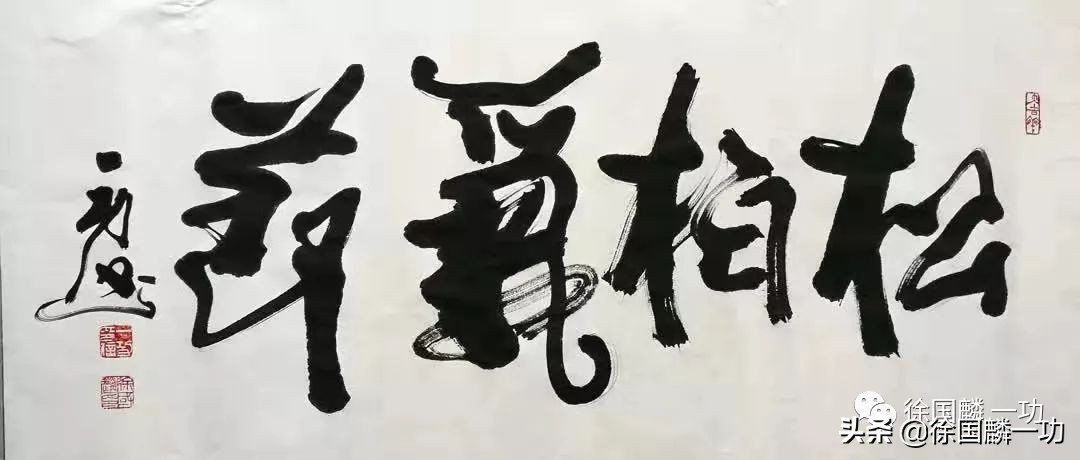 松柏氣節
一功題
徐国麟一功
头条 @徐国麟一功